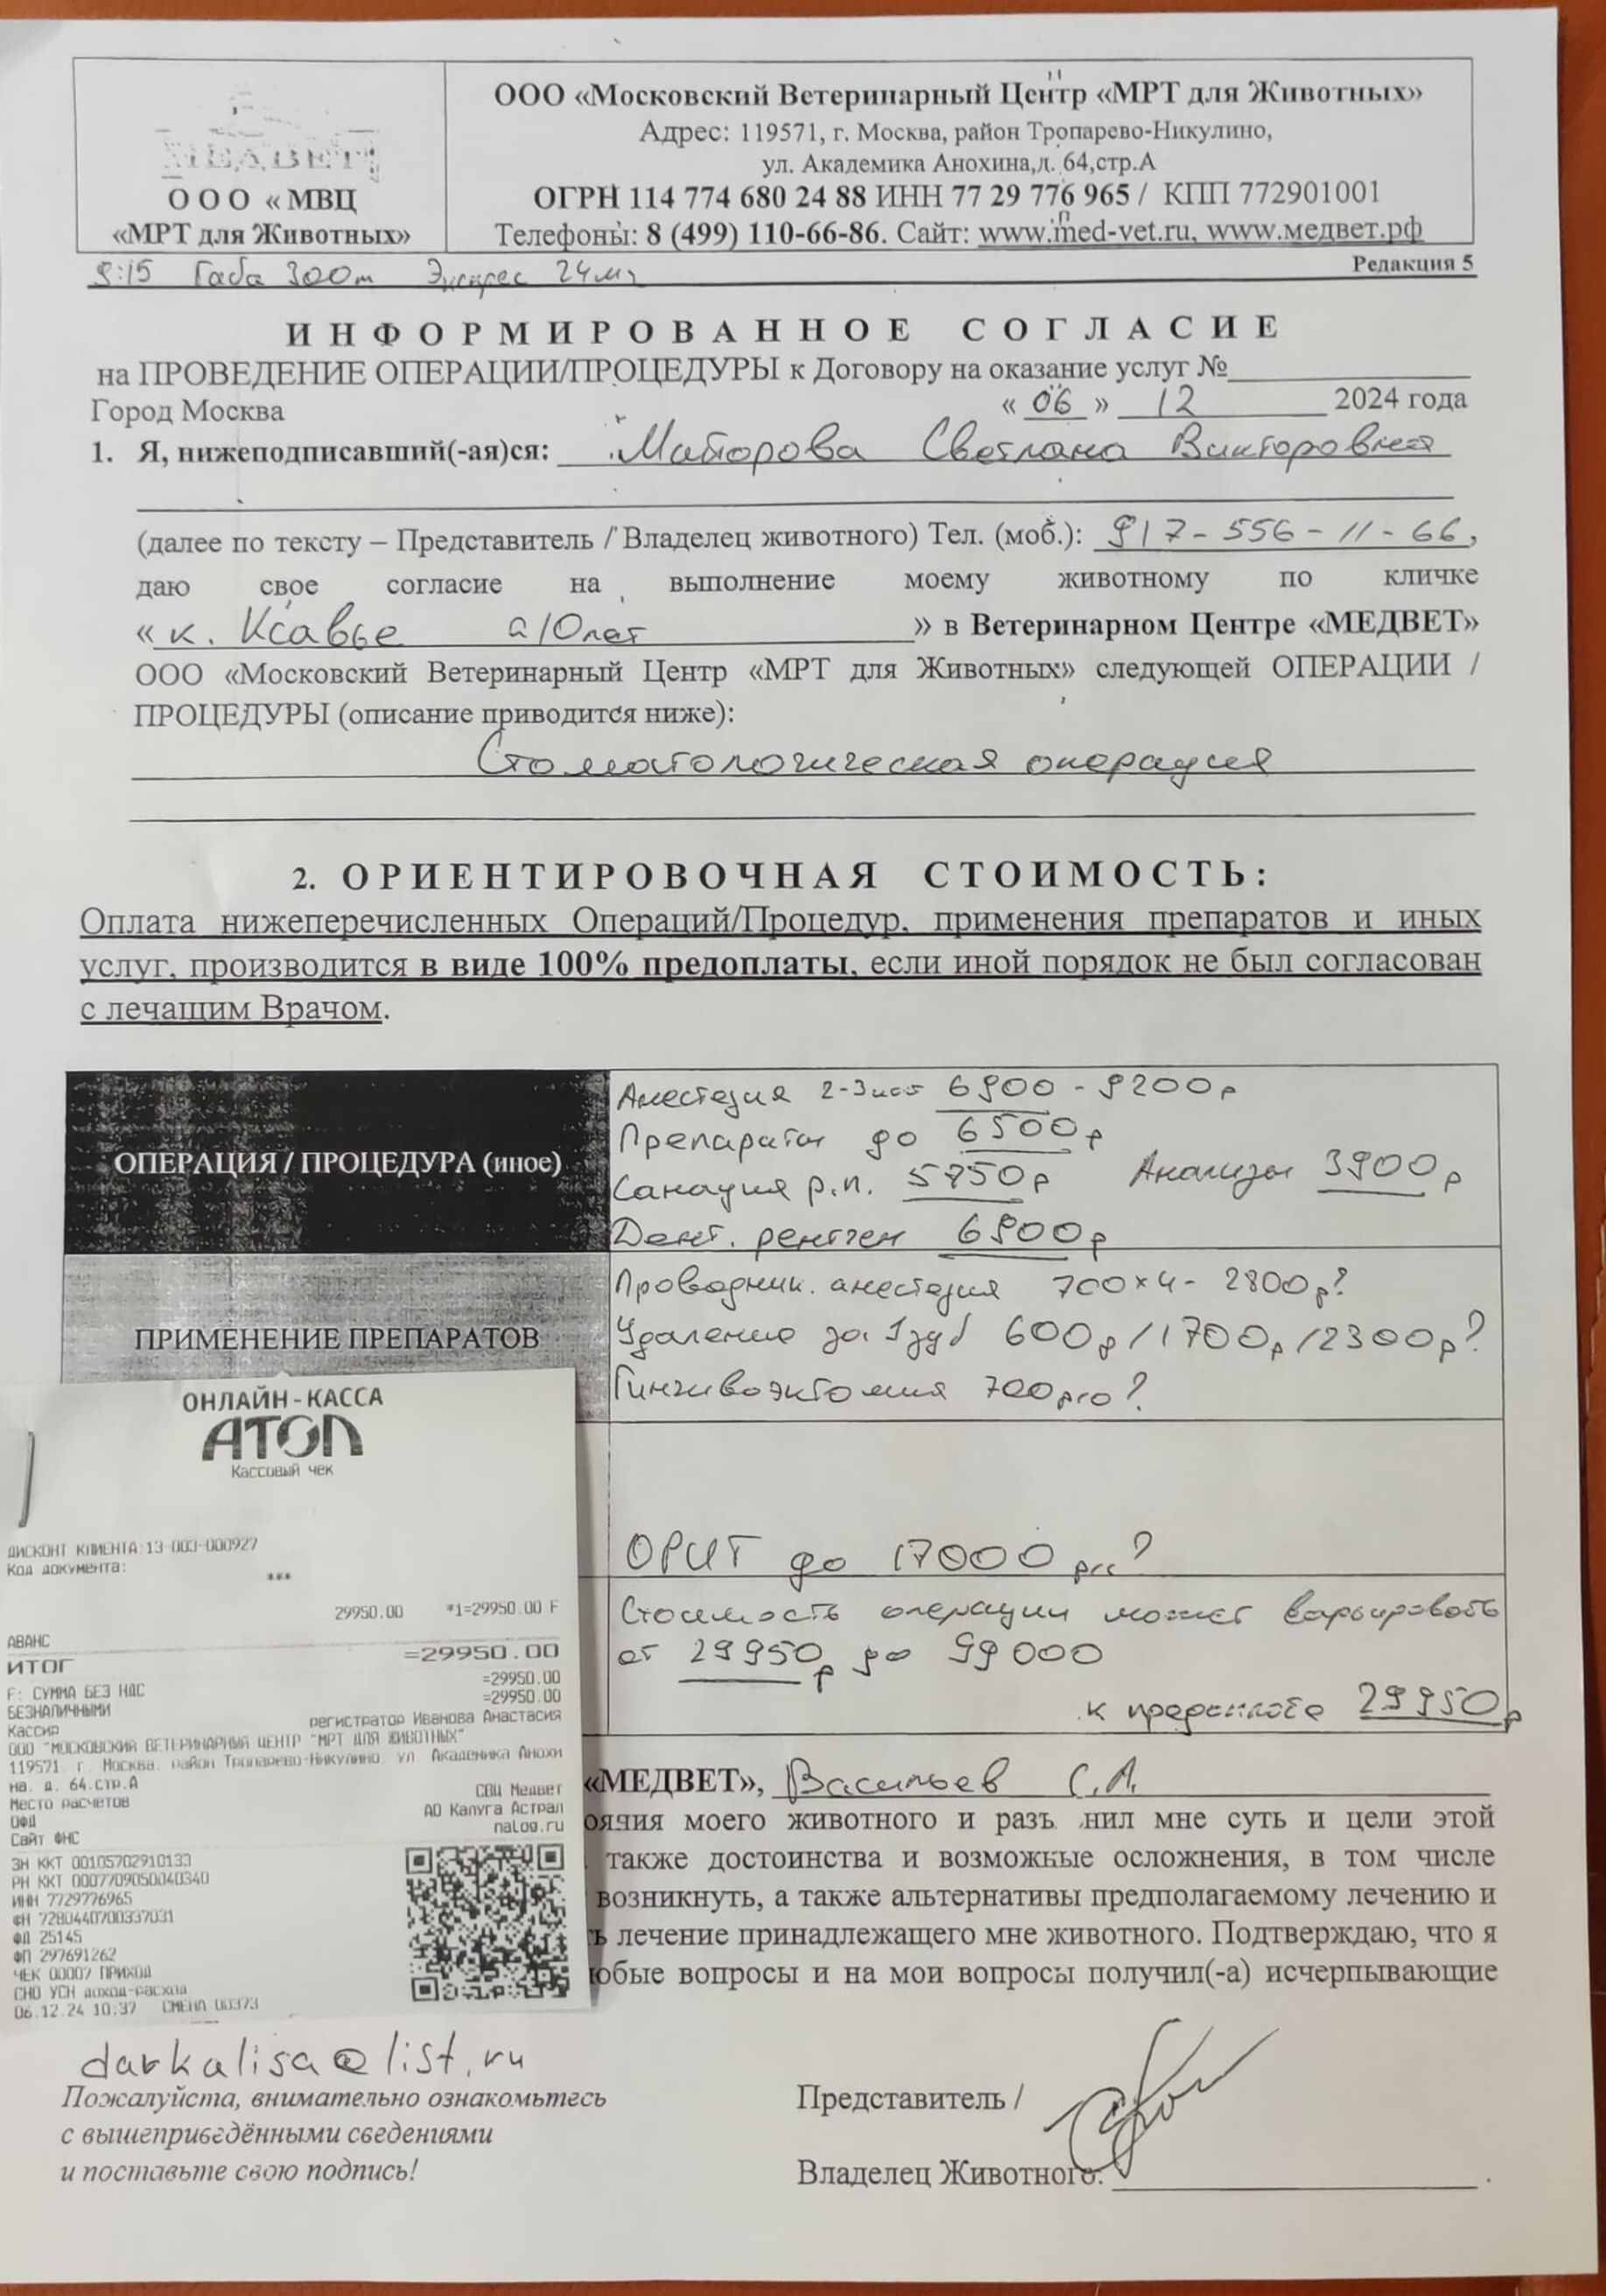 МЕДВЕТ
ООО «МВЦ
«МРТ для Животных»
ООО «Московский Ветеринарный Центр «МРТ для Животных»
Адрес: 119571, г. Москва, район Тропарево-Никулино,
ул. Академика Анохина,д. 64,стр.А
ОГРН 114 774 680 24 88 ИНН 77 29 776 965 / КПП 772901001
Телефоны: 8 (499) 110-66-86. Сайт: www.med-vet.ru, www.медвет.рф
9:15 Габа 300м Экспрес 24мг
Редакция 5
ИНФОРМИРОВАННОЕ СОГЛАСИЕ
на ПРОВЕДЕНИЕ ОПЕРАЦИИ/ПРОЦЕДУРЫ к Договору на оказание услуг №
Город Москва « 06 » 12 2024 года
1. Я, нижеподписавший(-ая)ся: Майорова Светлана Викторовна
(далее по тексту – Представитель / Владелец животного) Тел. (моб.): 917-556-11-66,
даю свое согласие на выполнение моему животному по кличке
« к. Ксавье 10лет » в Ветеринарном Центре «МЕДВЕТ»
ООО «Московский Ветеринарный Центр «МРТ для Животных» следующей ОПЕРАЦИИ /
ПРОЦЕДУРЫ (описание приводится ниже):
Стоматологическая операция
2. ОРИЕНТИРОВОЧНАЯ СТОИМОСТЬ:
Оплата нижеперечисленных Операций/Процедур, применения препаратов и иных
услуг, производится в виде 100% предоплаты, если иной порядок не был согласован
с лечащим Врачом.
ОПЕРАЦИЯ / ПРОЦЕДУРА (иное)
Анестезия 2-3 6900 - 9200р
Препараты до 6500р
Санация р.п. 5750р Анализы 3900р
Дент. рентген 6900р
ПРИМЕНЕНИЕ ПРЕПАРАТОВ
Проводник. анестезия 700×4- 2800р?
Удаление за 1 зуб 600р/1700р/2300р?
Гингивоэктомия 700 ?
ОРИТ до 17000 ?
Стоимость операции может варьировать
от 29950р до 99000
к предоплате 29950р
ОНЛАЙН-КАССА
АТОЛ
Кассовый чек
ДИСКОНТ КЛИЕНТА:13-003-000927
Код документа:
***
29950.00 *1=29950.00 F
АВАНС
ИТОГ =29950.00
F: СУММА БЕЗ НДС =29950.00
БЕЗНАЛИЧНЫМИ =29950.00
Кассир регистратор Иванова Анастасия
ООО "МОСКОВСКИЙ ВЕТЕРИНАРНЫЙ ЦЕНТР "МРТ ДЛЯ ЖИВОТНЫХ"
119571, г. Москва, район Тропарево-Никулино, ул. Академика Анохи
на, д. 64,стр.А
Место расчетов СВЦ Медвет
ОФД АО Калуга Астрал
Сайт ФНС nalog.ru
ЗН ККТ 00105702910133
РН ККТ 0007709050040340
ИНН 7729776965
ФН 7280440700337031
ФД 25145
ФП 297691262
ЧЕК 00007 ПРИХОД
СНО УСН доход-расход
06.12.24 10:37 СМЕНА 00373
«МЕДВЕТ», Васильев С.А.
ояния моего животного и разъ нил мне суть и цели этой
также достоинства и возможные осложнения, в том числе
возникнуть, а также альтернативы предполагаемому лечению и
ь лечение принадлежащего мне животного. Подтверждаю, что я
юбые вопросы и на мои вопросы получил(-а) исчерпывающие
darkalisa@list.ru
Пожалуйста, внимательно ознакомьтесь
с вышеприведёнными сведениями
и поставьте свою подпись!
Представитель /
Владелец Животного: